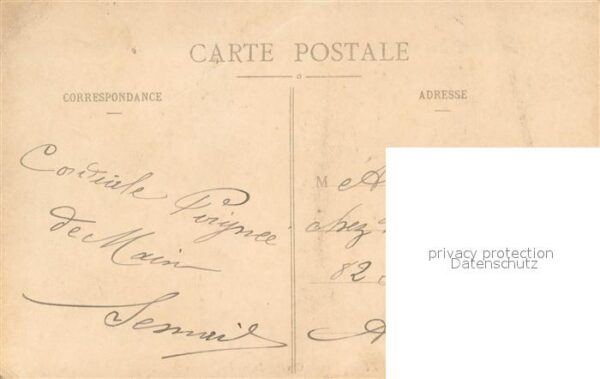 CARTE POSTALE
CORRESPONDANCE
ADRESSE
Cordiale Poignée
de Main
M
chez
82
privacy protection
Datenschutz